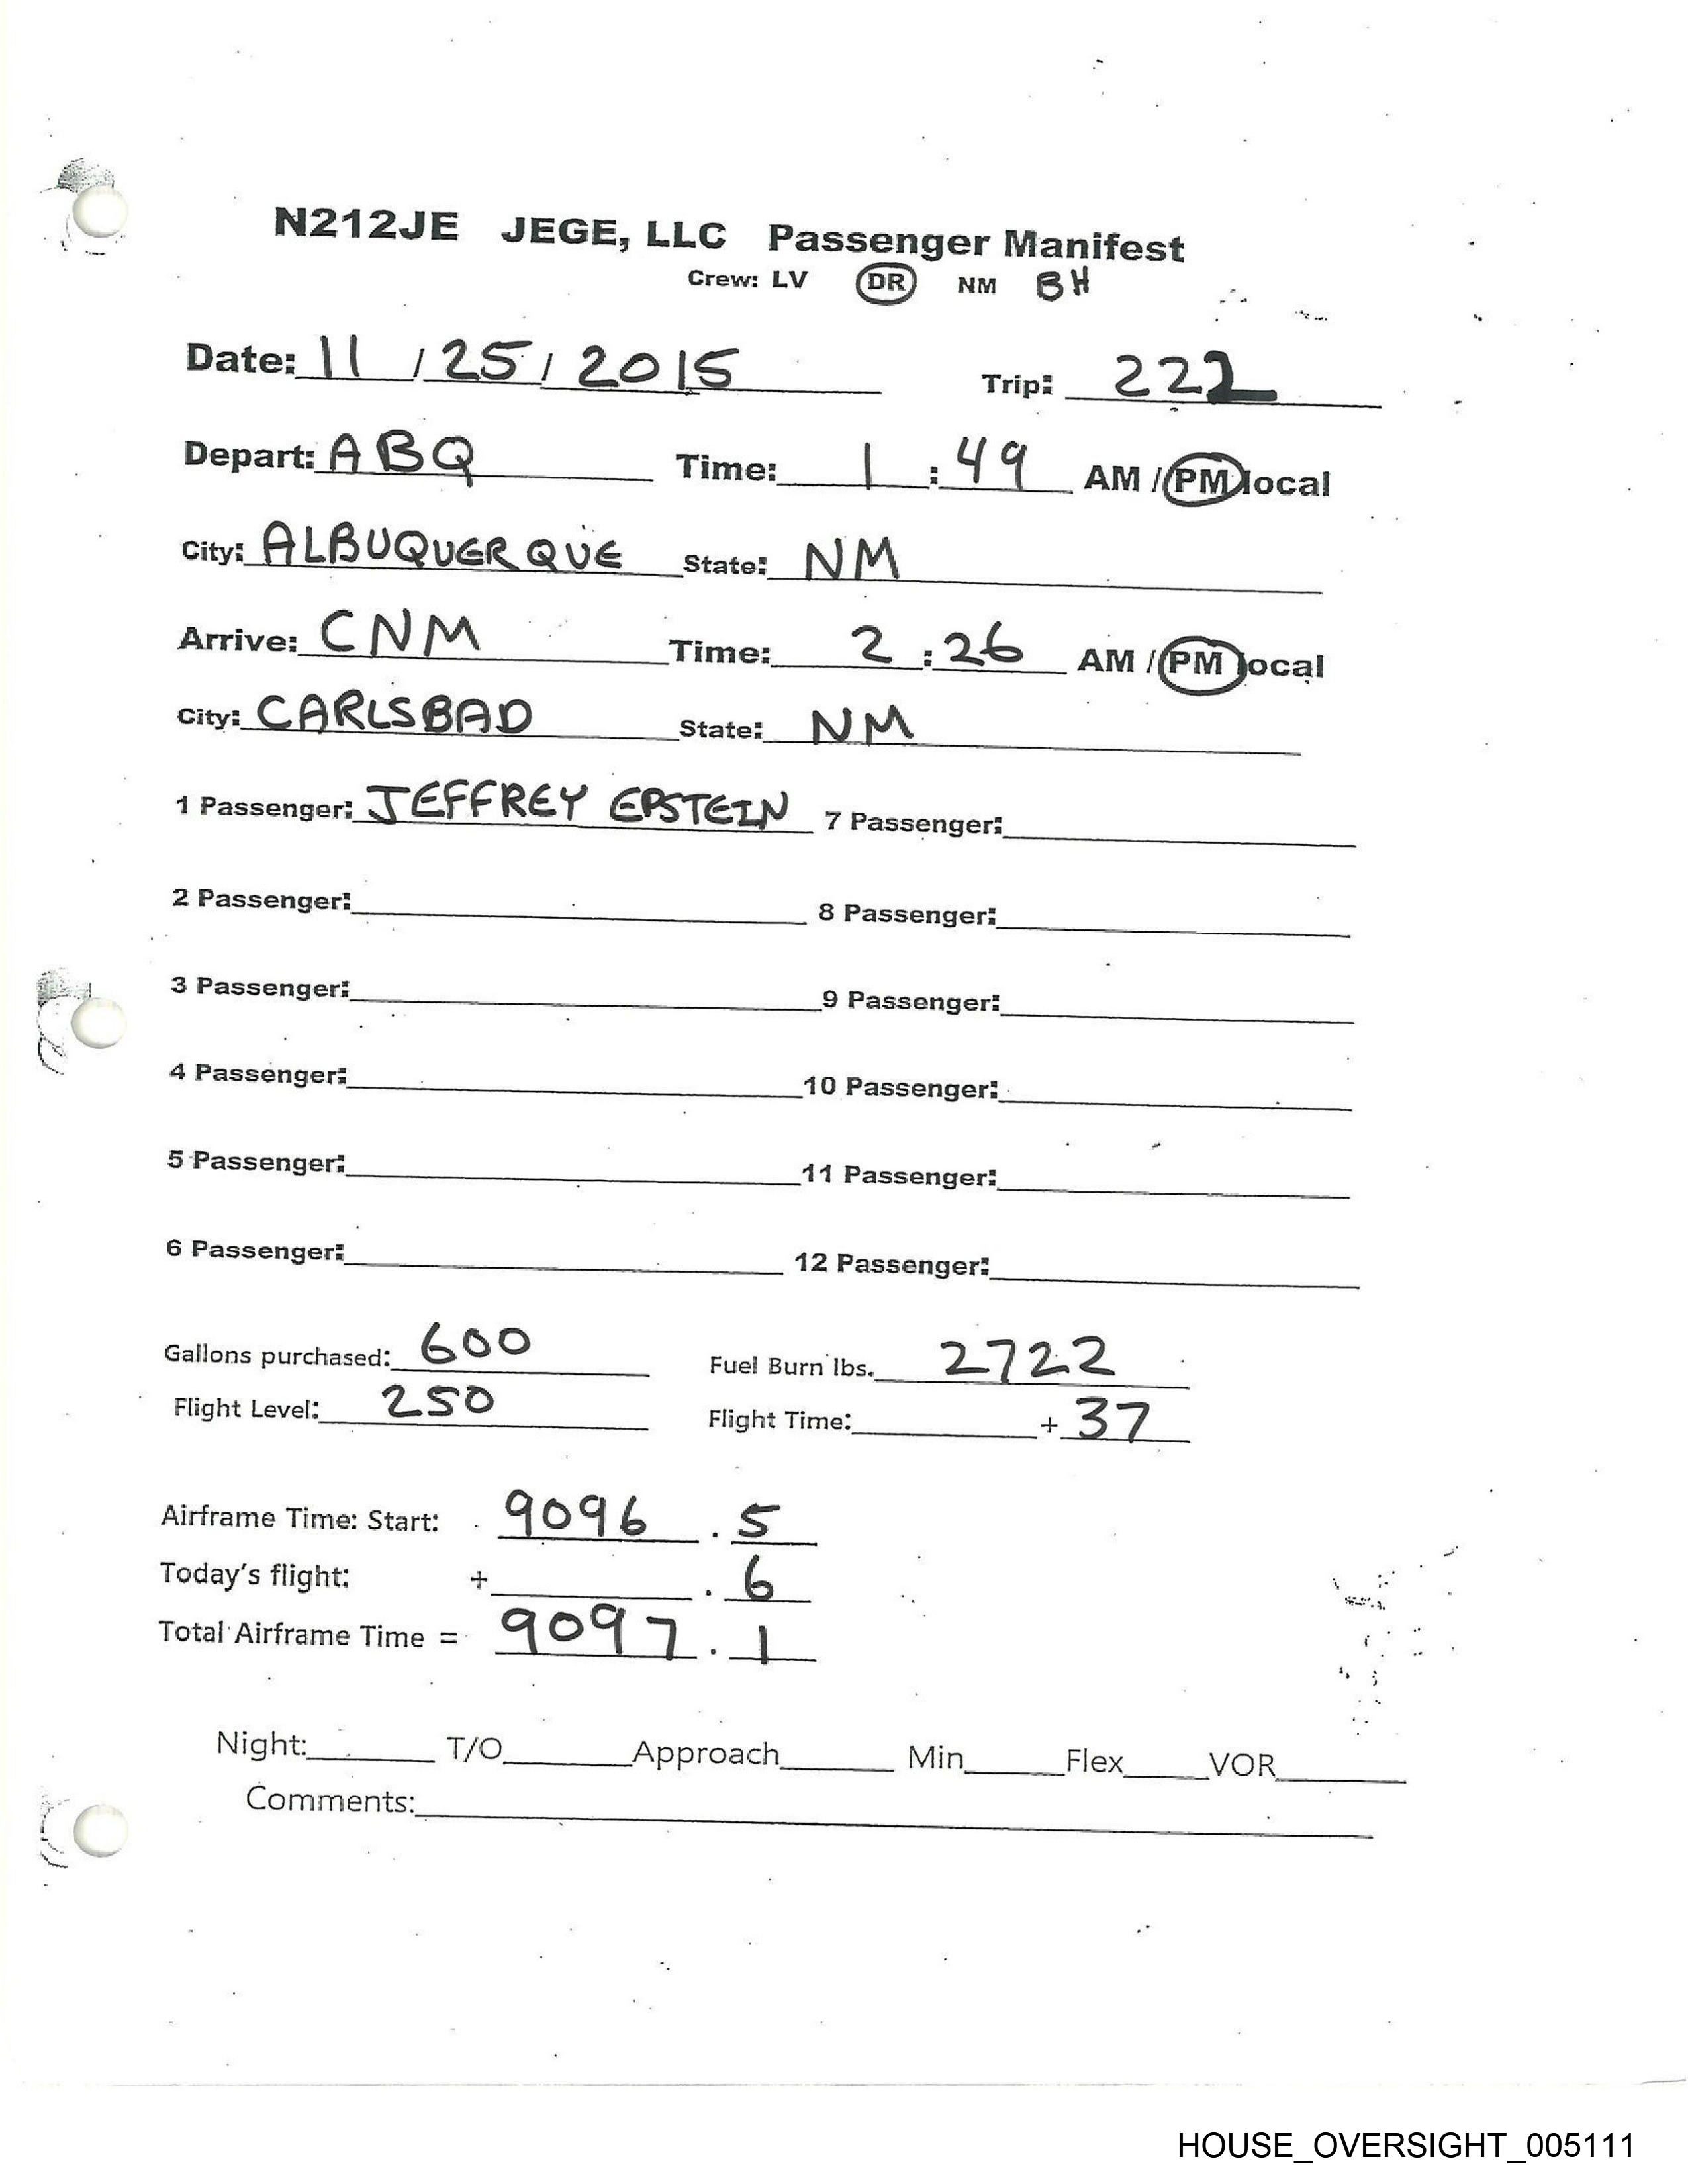 N212JE JEGE, LLC Passenger Manifest
Crew: LV DR NM BH
Date: 11 / 25 / 2015 Trip: 222
Depart: ABQ Time: 1 : 49 AM / PM local
City: ALBUQUERQUE State: NM
Arrive: CNM Time: 2 : 26 AM / PM local
City: CARLSBAD State: NM
1 Passenger: JEFFREY EPSTEIN 7 Passenger:
2 Passenger: 8 Passenger:
3 Passenger: 9 Passenger:
4 Passenger: 10 Passenger:
5 Passenger: 11 Passenger:
6 Passenger: 12 Passenger:
Gallons purchased: 600 Fuel Burn lbs. 2722
Flight Level: 250 Flight Time: + 37
Airframe Time: Start: 9096 . 5
Today's flight: + . 6
Total Airframe Time = 9097 . 1
Night: T/O Approach Min Flex VOR
Comments:
HOUSE_OVERSIGHT_005111